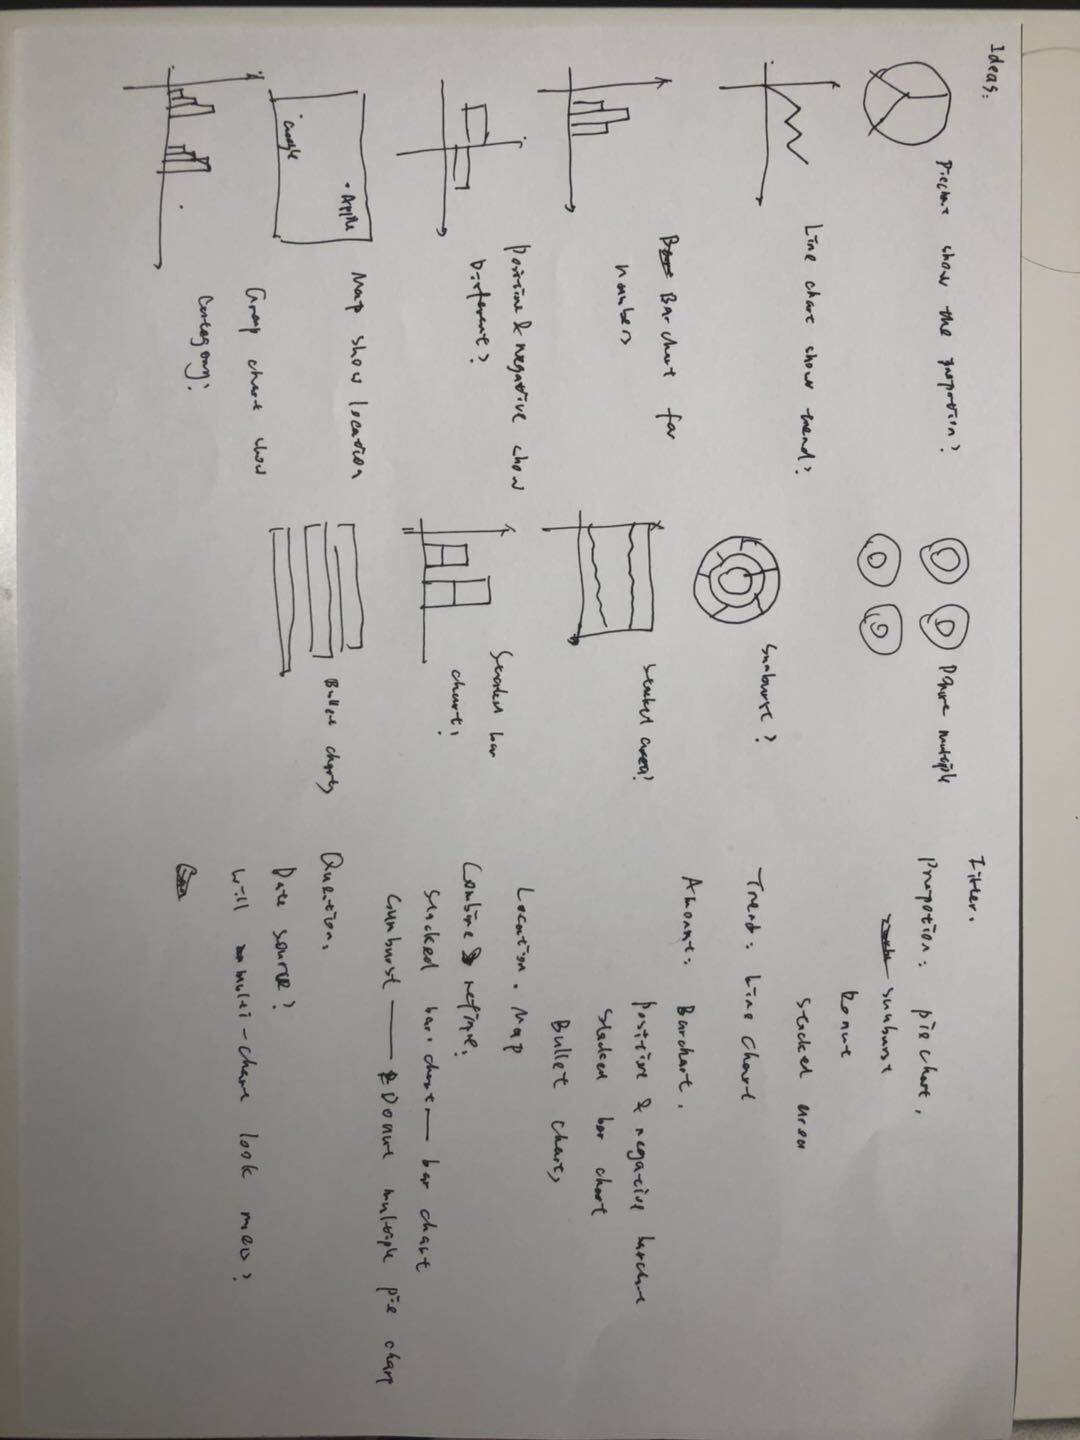 Ideas.
Piechart show the proportion?
Line chart show trend?
Bar chart for
numbers
Positive & negative show
Different?
Google
Apple
Map show location
Group chart show
Category?
multiple
Sunburst?
Stacked area?
Stacked bar
chart?
Bullet charts
Filter.
Propotion: pie chart,
sunburst
Donut
stacked area
Trend: Line chart
Amount: Barchart.
Positive & negative barchart
Stacked bar chart
Bullet charts
Location. Map
Combine & refine:
Stacked bar chart — bar chart
Sunburst — Donut multiple pie chart
Question.
Data source?
Will multi-chart look mess?